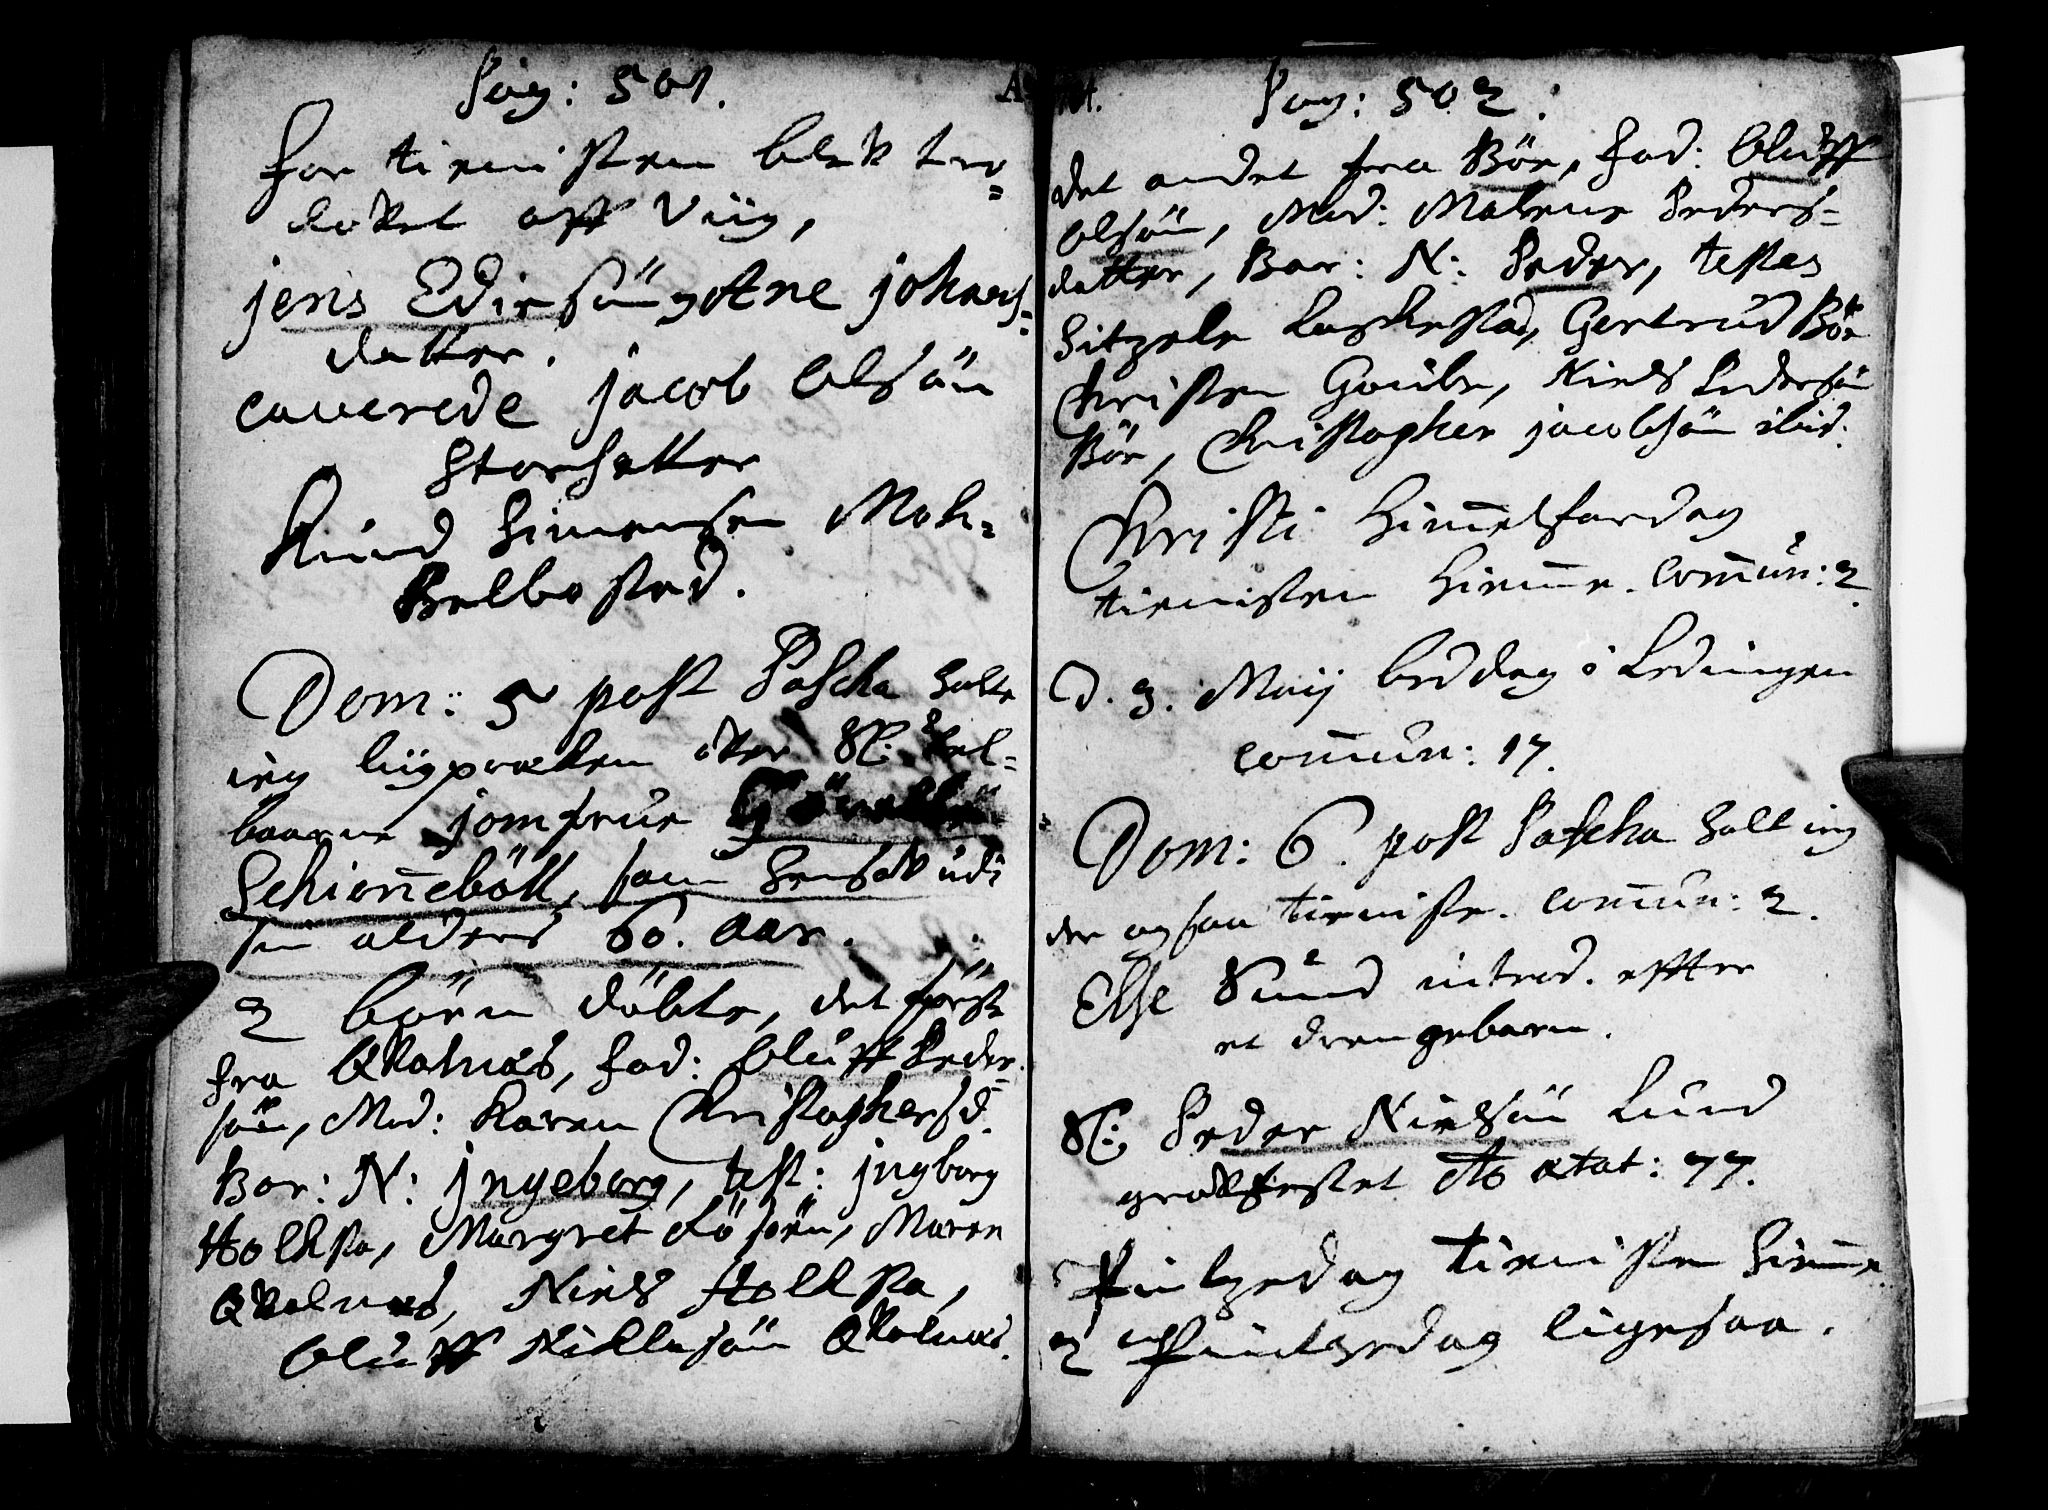 Pag: 501.
for tienisten blek tro=
lovet aff Viig,
jens Edirsön, Ane johans=
datter.
caverede jacob Olsön
Storsetter
Knud Simensen Moh=
Belbostad.
Dom: 5 post Pascha holte
ieg liigpræken over Sl. Vel=
baarne jomfrue
Schionnebôll, som hensov udi
sin alders 60. aar.
2 börn döbte, det förste
fra Qvalnæs, fad: Oluff Peder
sön, Mod: Karen Christophersd.
Bar: N: jngeborg, test: jngborg
Holksta, Margret Lösöen, Maren
Qvalnæs, Niels Holksta,
Oluff Nielssön Qvalnæs.
Pag: 502.
det andet fra Bör, fad: Oluff
Olsön, Mod: Malene Peders=
datter, Bar: N: Peder, testes
Sitzele Laschestad, Gertrud Bör
Christen Gouln, Niels Pedersön
Bör, Christopher jacobsön ibid.
Christi Himmelfardag
tienisten hiemme. Commun: 2.
D. 3. Maij beddag i Lödingen
commun: 17.
Dom: 6. post Pascha holt ieg
der ogsaa tieniste. Commun: 2.
Else Sund introd. effter
et drengebarn.
Sl: Peder Nielsön Lund
gravfestet Ao ætat: 77.
Pintzedag tienisten hiemme.
2 Pintzedag ligesaa.